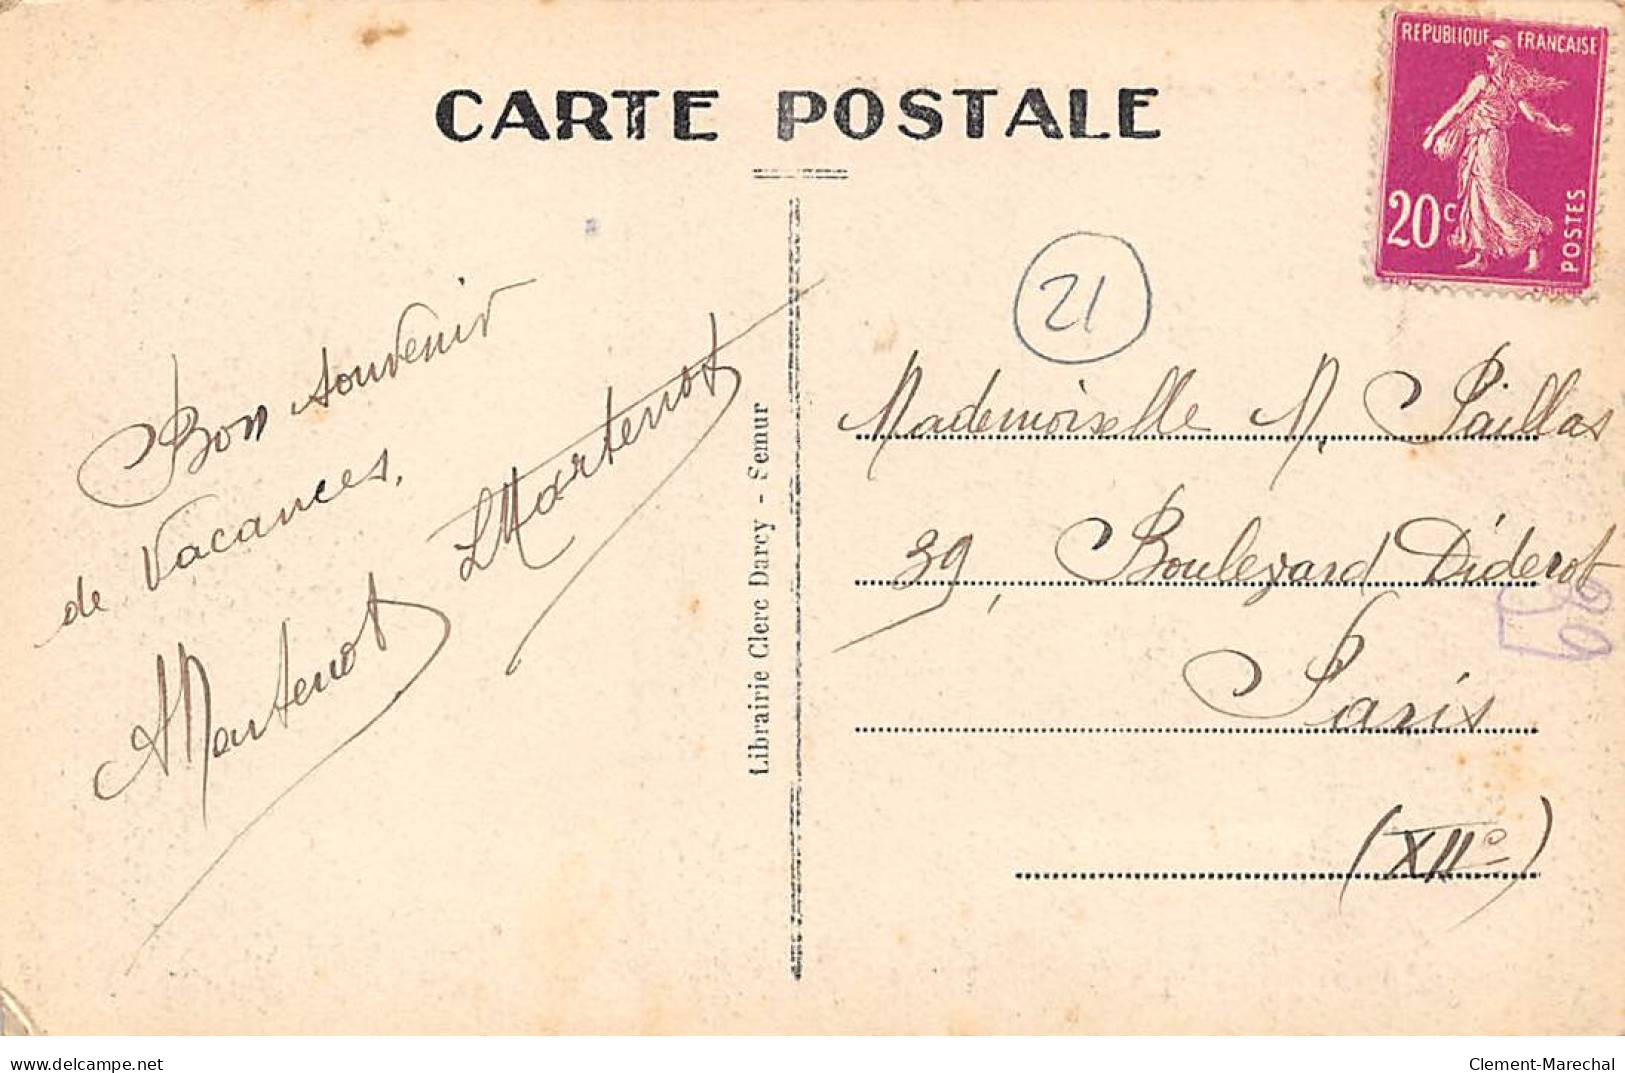 CARTE POSTALE
REPUBLIQUE FRANCAISE
20c
POSTES
21
Bon souvenir
de Vacances.
LMartenot
AMartenot
Librairie Clerc Darcy - Semur
Mademoiselle M. Paillas
39, Boulevard Diderot
Paris
(XIIe)
delcampe.net
Clement-Marechal